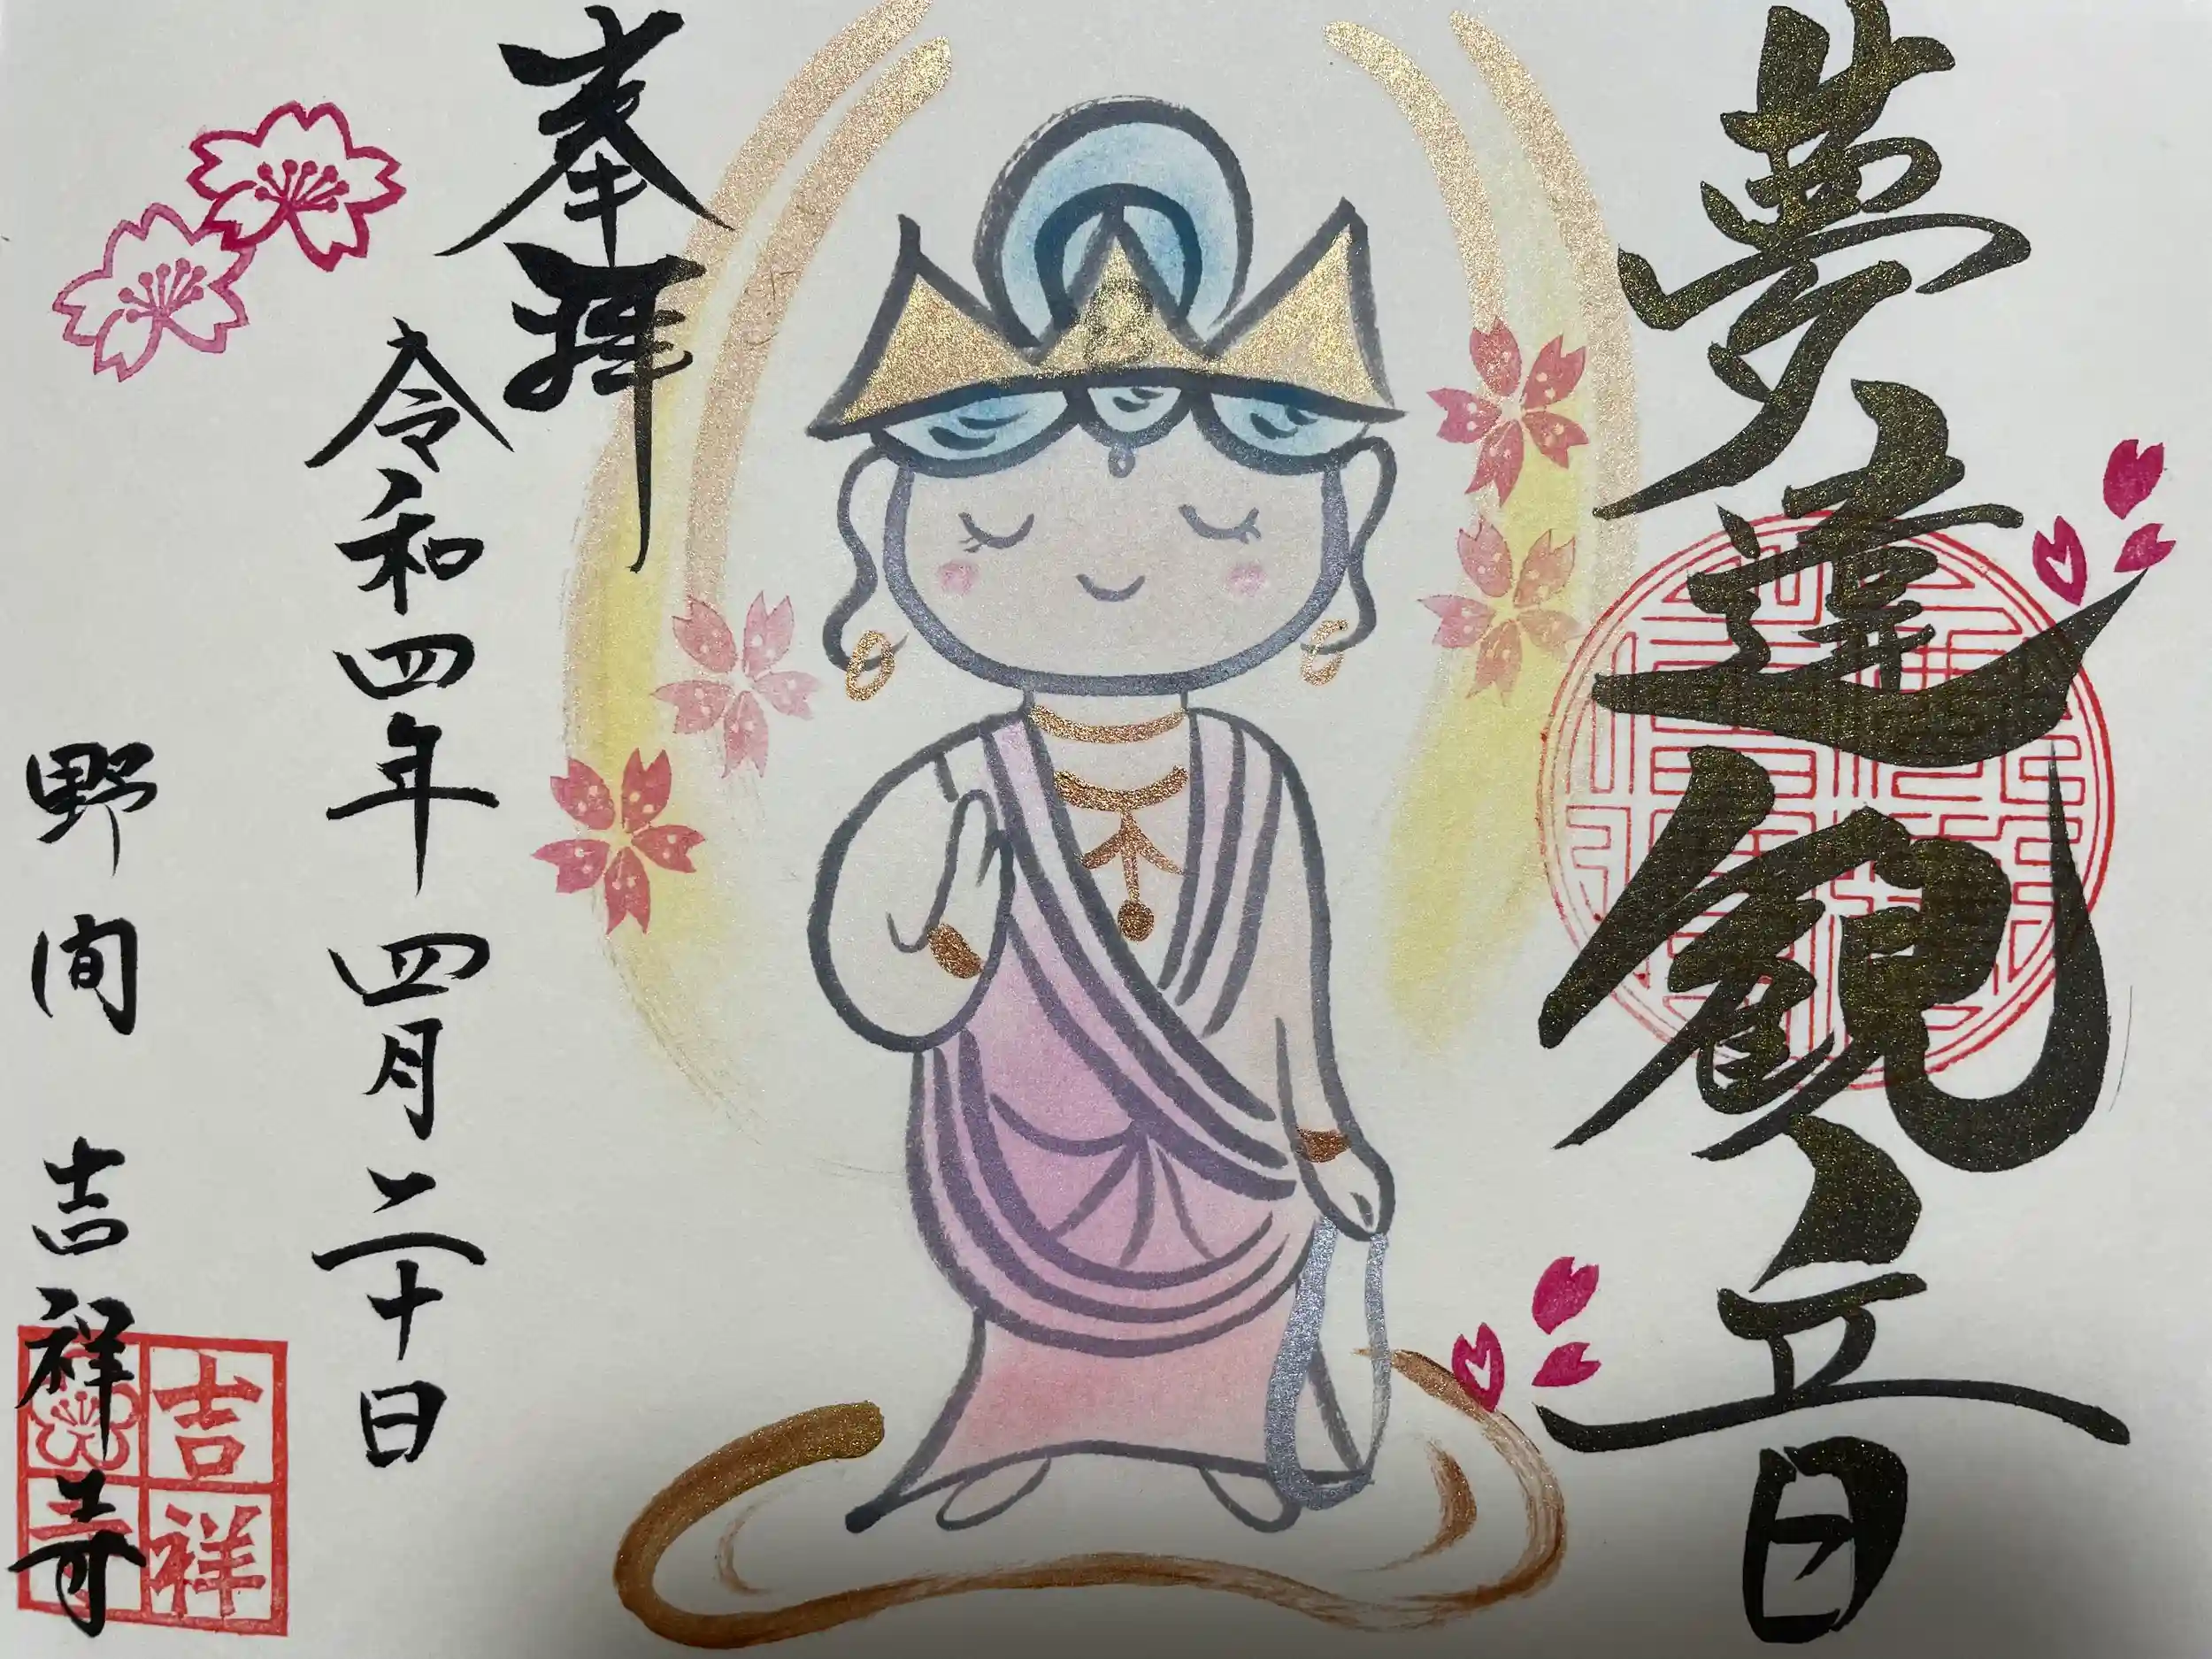 夢違観音
奉拝
令和四年四月二十日
野間 吉祥寺
吉祥